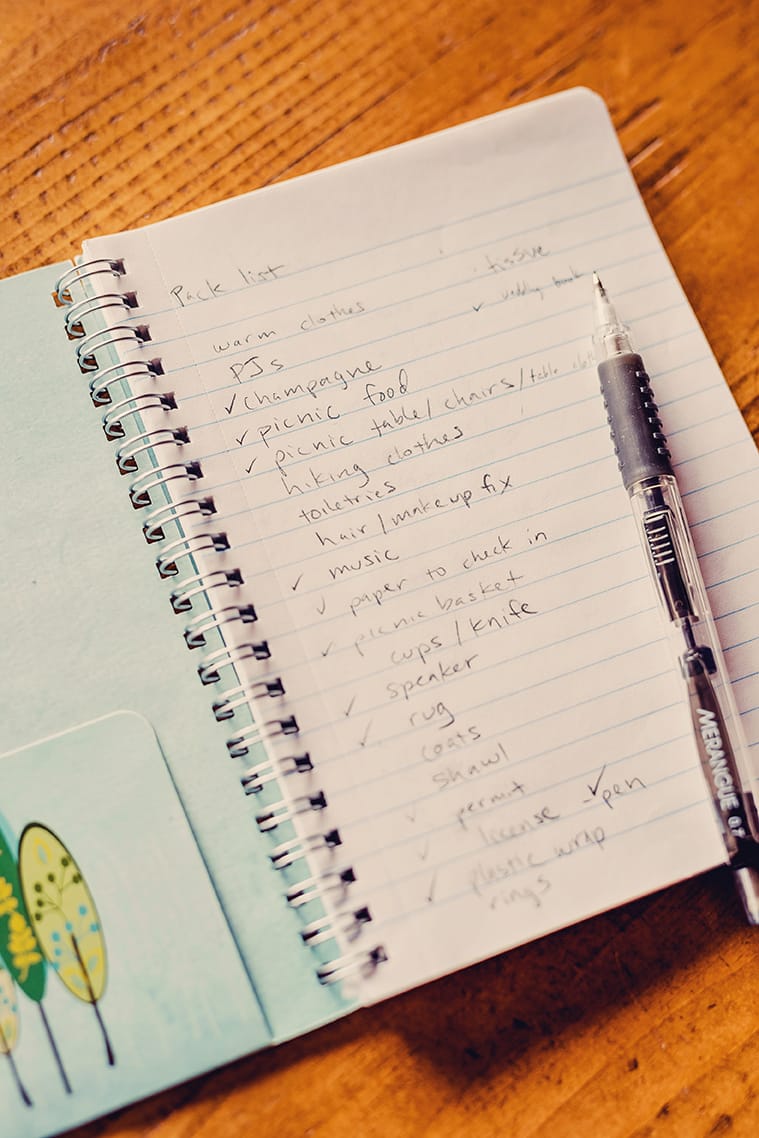 Pack list
tissue
warm clothes
✓ book
PJs
✓ champagne
✓ picnic food
✓ picnic table/chairs/table cloth
hiking clothes
toiletries
hair/makeup fix
✓ music
✓ paper to check in
✓ picnic basket
cups/knife
✓ speaker
✓ rug
coats
shawl
✓ permit
✓ license - ✓ pen
✓ plastic wrap
rings
MERANGUE 0.7